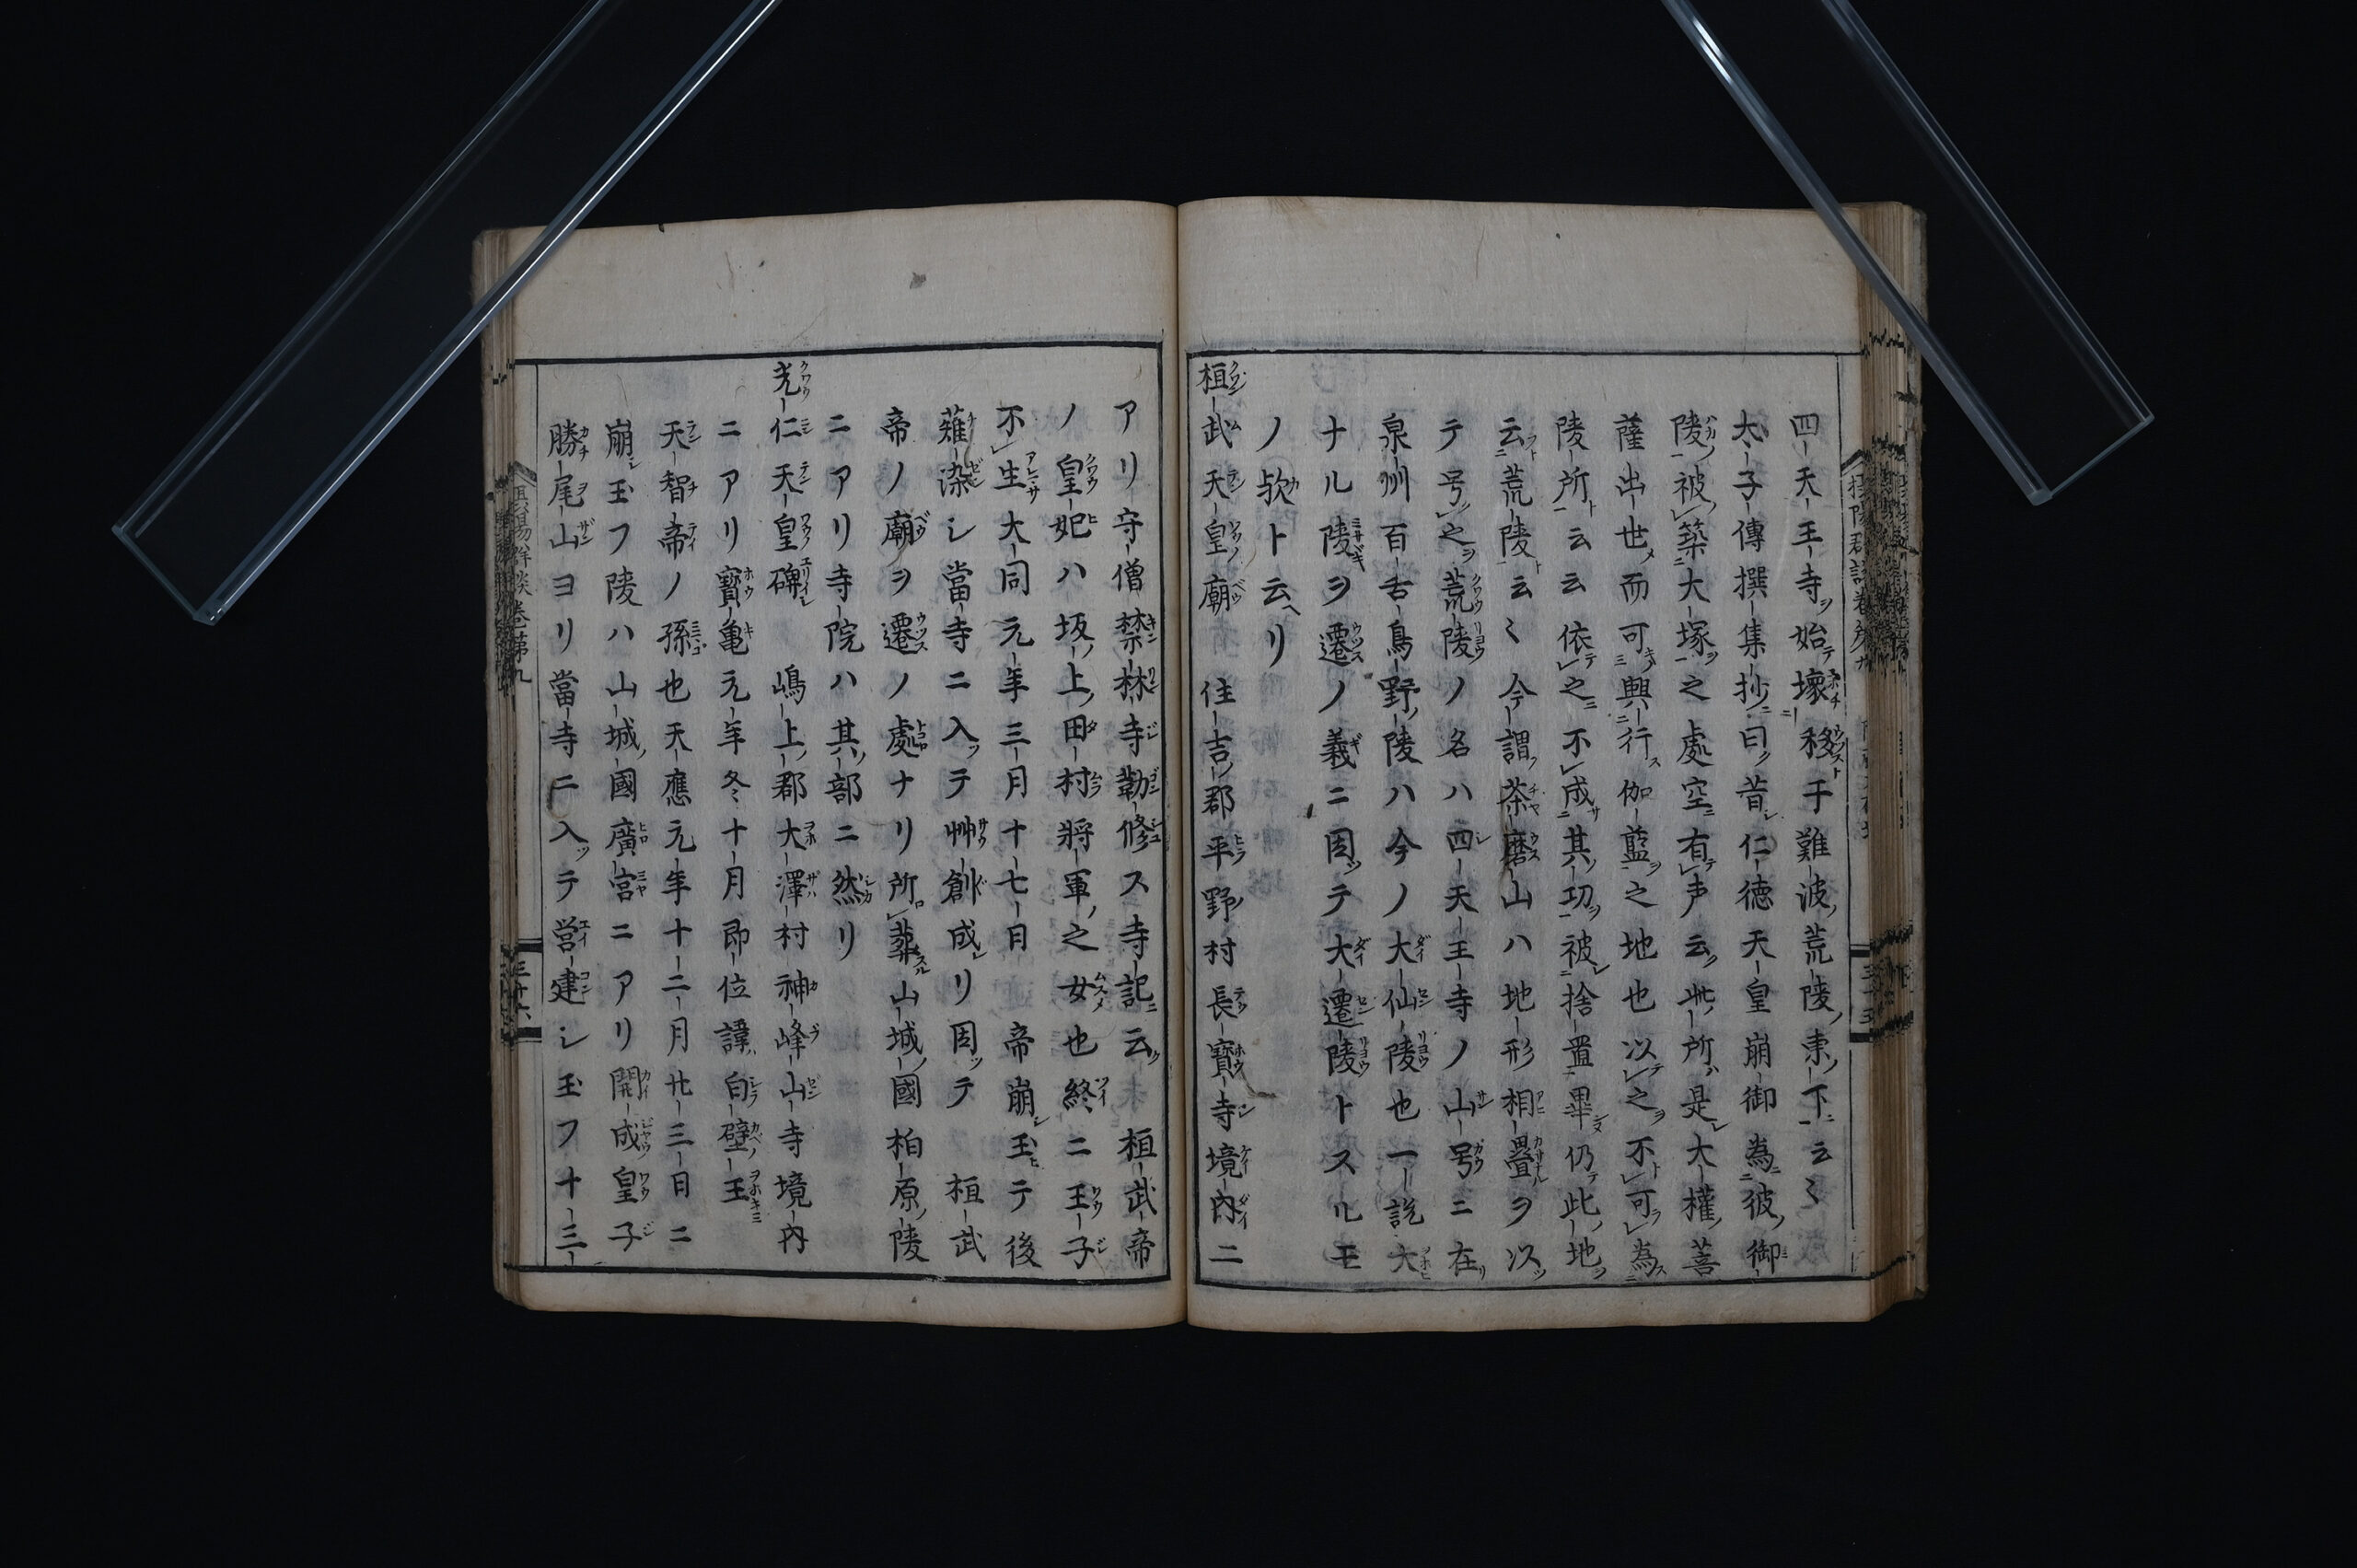 四天王寺始壞移于難波荒陵東下云〻
太子傳撰集抄曰昔仁徳天皇崩御為彼御
陵被築大塚之處空有声云此所是大權菩
薩出世而可興行伽藍之地也以之不可為
陵所云云依之不成其功被捨置畢仍此地
云荒陵云〻今謂茶磨山ハ地形相疊ヲ以
テ号之荒陵ノ名ハ四天王寺ノ山号ニ在
泉州百舌鳥野陵ハ今ノ大仙陵也一説大
ナル陵ヲ遷ノ義ニ因テ大遷陵トスルモ
ノ欤ト云リ
桓武天皇廟 住吉郡平野村長寶寺境内ニ
アリ守僧禁林寺勒修ス寺記云 桓武帝
ノ皇妃ハ坂上田村将軍之女也終ニ王子
不生大同元年三月十七日 帝崩玉テ後
薙染レ當寺ニ入テ艸創成リ因テ 桓武
帝ノ廟ヲ遷ノ處ナリ所葬山城國柏原陵
ニアリ寺院ハ其部ニ然リ
光仁天皇碑 嶋上郡大澤村神峰山寺境内
ニアリ寶亀元年冬十月即位諱白壁王
天智帝ノ孫也天應元年十二月廿三日ニ
崩玉フ陵ハ山城國廣宮ニアリ開成皇子
勝尾山ヨリ當寺ニ入テ営建レ玉フ十三